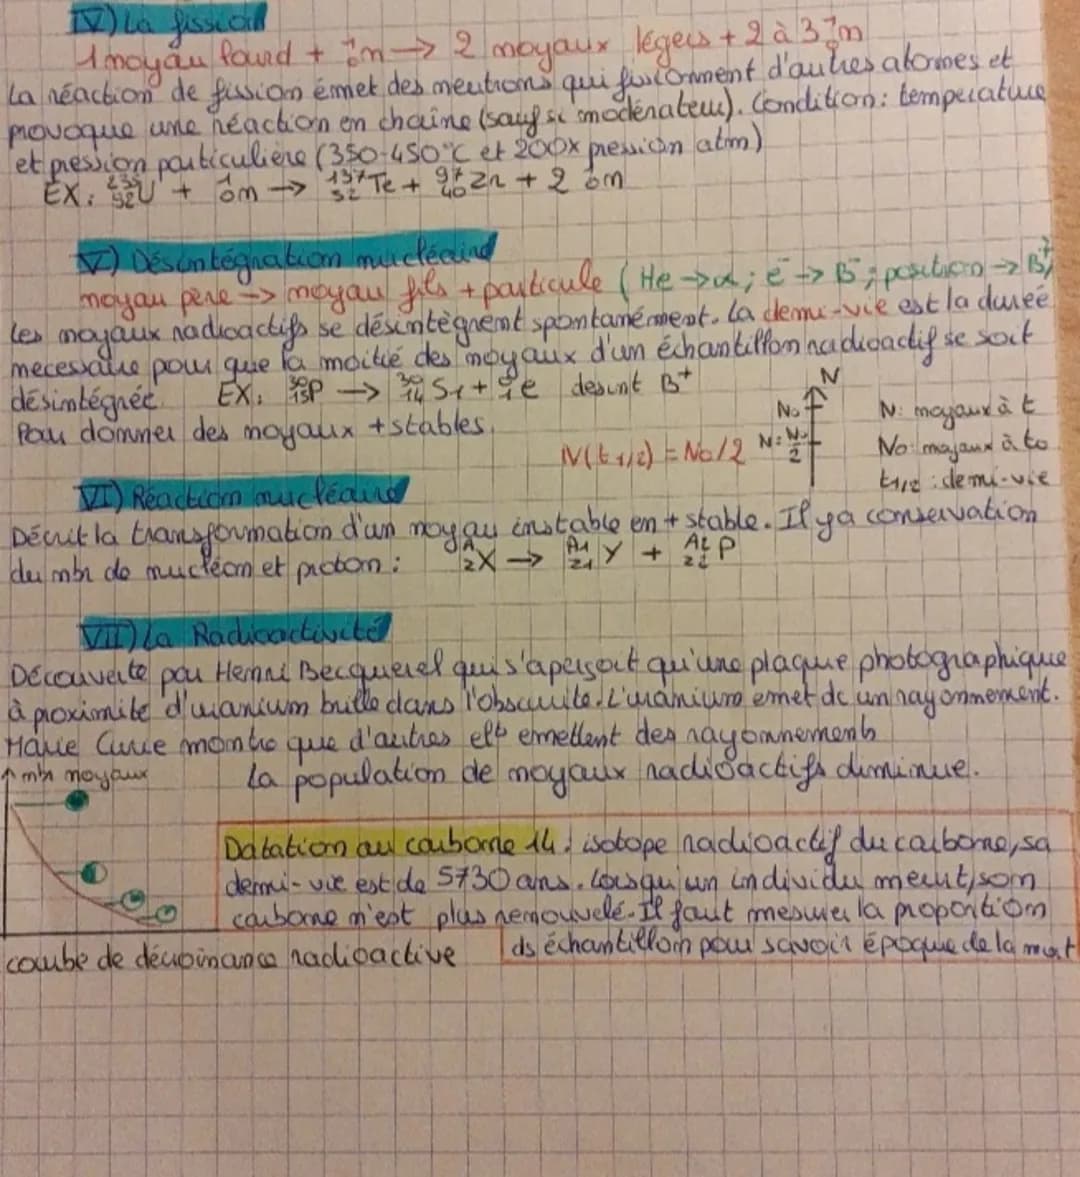 IV) La fission
1 noyau lourd + ¹₀n → 2 noyaux légers + 2 à 3 ¹₀n
La réaction de fission émet des neutrons qui fusionnent d'autres atomes et
provoque une réaction en chaine (sauf si modérateur). Condition: temperature
et pression particulière (350-450°C et 200x pression atm)
EX: ²³⁵₉₂U + ¹₀n → ¹³⁷₅₂Te + ⁹⁷₄₀Zr + 2 ¹₀n
V) Désintégration nucléaire
noyau père → noyau fils + particule (He → α; e⁻ → B⁻; position → B⁺)
Les noyaux radioactifs se désintègrent spontanément. La demi-vie est la durée
necessaire pour que la moitié des noyaux d'un échantillon radioactif se soit
désintégrée. EX: ³⁰₁₅P → ³⁰₁₄Si + ⁰₁e desint B⁺
Pour donner des noyaux + stables.
N
No
N(t1/2) = No/2
N = No/2
N: noyaux à t
No: noyaux à to
t1/2: demi-vie
VI) Réaction nucléaire
Décrit la transformation d'un noyau instable en + stable. Il y a conservation
du nbr de nucléon et proton: ᴬzX → ᴬ¹z1Y + ᴬ²z2P
VII) La Radioactivité
Découverte par Henri Becquerel qui s'aperçoit qu'une plaque photographique
à proximité d'uranium brille dans l'obscurité. L'uranium emet dc un rayonnement.
Marie Curie montre que d'autres elts emettent des rayonnements
nbr noyaux
La population de noyaux radioactifs diminue.
Datation au carbone 14: isotope radioactif du carbone, sa
demi-vie est de 5730 ans. Lorsqu'un individu meurt, son
carbone n'est plus renouvelé. Il faut mesurer la proportion
ds échantillon pour savoir époque de la mort
courbe de décroinance radioactive